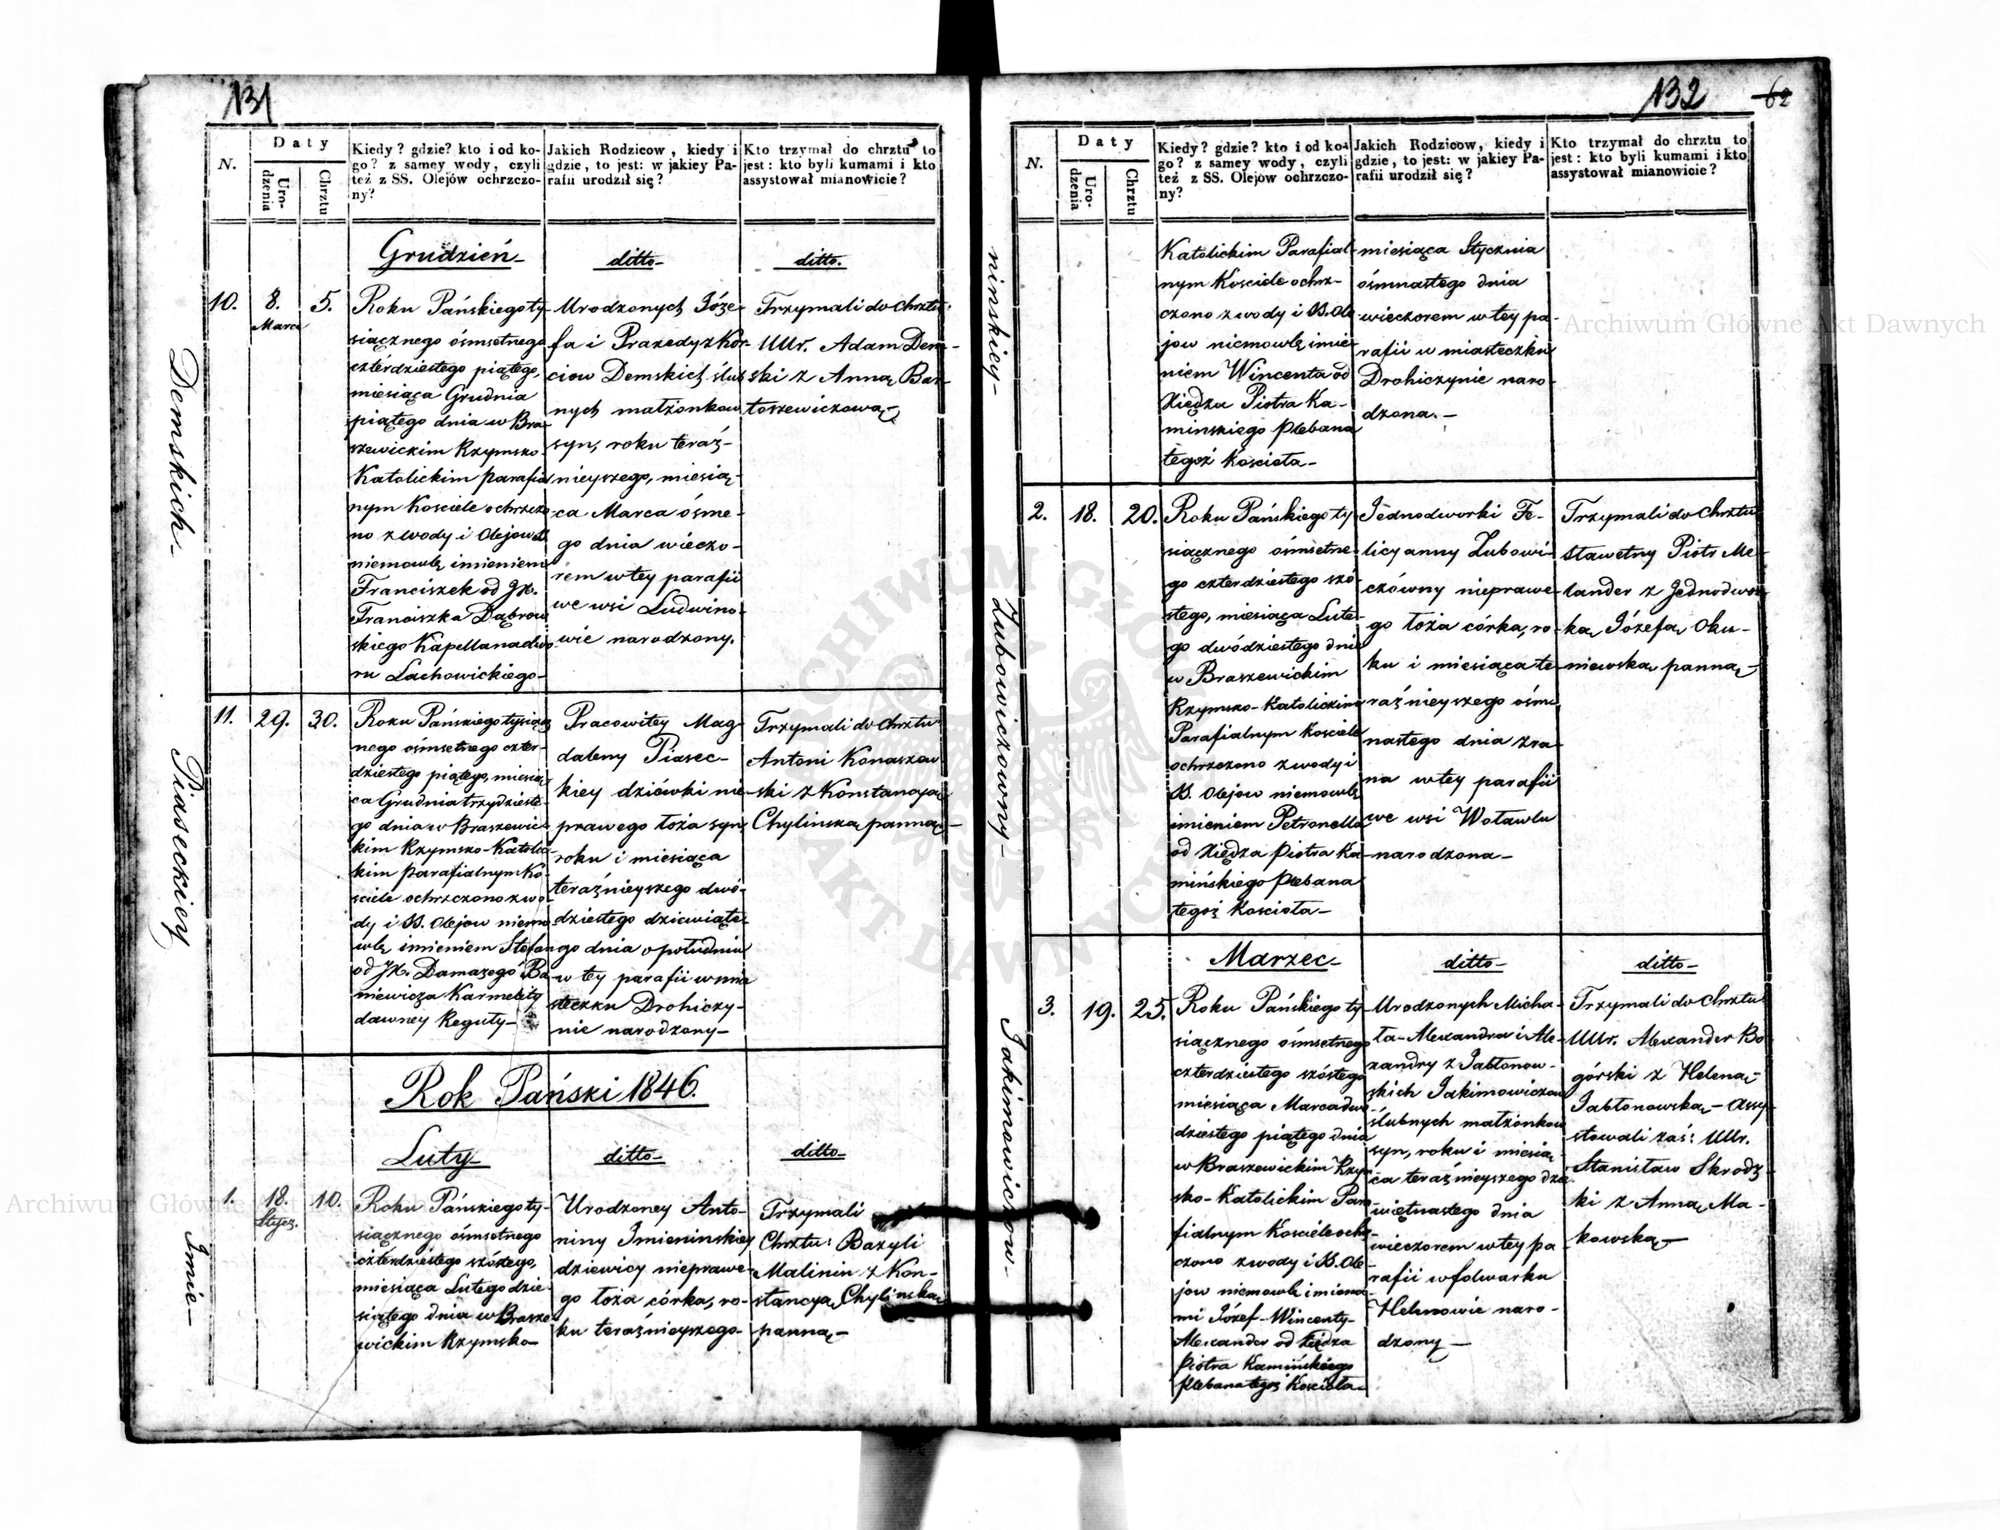 131
N.
Daty
Urodzenia
Chrztu
Kiedy? gdzie? kto i od ko-
go? z samey wody, czyli
też z SS. Olejów ochrzczo-
ny?
Jakich Rodzicow, kiedy i
gdzie, to jest: w jakiey Pa-
rafii urodził się?
Kto trzymał do chrztu to
jest: kto byli kumami i kto
assystował mianowicie?
Grudzień
ditto
ditto.
Demskich
10.
8.
Marca
5.
Roku Pańskiego ty-
siącznego ósmsetnego
czterdziestego piątego,
miesiąca Grudnia
piątego dnia w Bra-
szewickim Rzymsko
Katolickim parafial
nym Kosciele ochrzczo
no z wody i Olejow
niemowlę imieniem
Franciszek od JX.
Franciszka Dąbrow
skiego Kapellana dwo
ru Lachowickiego
Urodzonych Józe-
fa i Praxedy z Kor-
ciow Demskich ślub
nych małżonkow
syn, roku teraź-
nieyszego, miesią-
ca Marca ósme-
go dnia wieczo-
rem w tey parafii
we wsi Ludwino-
wie narodzony.
Trzymali do Chrztu:
UUr. Adam Dem-
ski z Anną Bar-
toszewiczową
Piaseckiey
11.
29.
30.
Roku Pańskiego tysiącz
nego ósmsetnego czter-
dziestego piątego, miesią
ca Grudnia trzydzieste-
go dnia w Braszewic
kim Rzymsko-Katolic
kim parafialnym Ko-
sciele ochrzczono z wo
dy i S. Olejow niemo
wlę imieniem Stefan
od JX. Damazego Ba
niewicza Karmelity
dawney Reguły
Pracowitey Mag-
daleny Piasec-
kiey dziéwki nie-
prawego łoża syn
roku i miesiąca
teraźnieyszego dwó-
dziestego dziewiąte-
go dnia o południu
w tey parafii w mia
steczku Drohiczy-
nie narodzony
Trzymali do Chrztu
Antoni Konaszew
ski z Konstancyą
Chylinską panną
Rok Pański 1846.
Luty
ditto
ditto
Imie-
1.
18.
Stycz.
10.
Roku Pańskiego ty-
siącznego ósmsetnego
czterdziestego szóstego,
miesiąca Lutego dzie-
siątego dnia w Brasze
wickim Rzymsko
Urodzoney Anto-
niny Imieninskiey
dziewicy nieprawe-
go łoża córka, ro-
ku teraźnieyszego
Trzymali
Chrztu: Bazyli
Malinin z Kon-
stancyą Chylinską
panną
132
62
N.
Daty
Urodzenia
Chrztu
Kiedy? gdzie? kto i od ko-
go? z samey wody, czyli
też z SS. Olejów ochrzczo-
ny?
Jakich Rodzicow, kiedy i
gdzie, to jest: w jakiey Pa-
rafii urodził się?
Kto trzymał do chrztu to
jest: kto byli kumami i kto
assystował mianowicie?
ninskiey
Katolickim Parafial-
nym Kosciele ochrz-
czono z wody i S. Ole
jow niemowlę imie
niem Wincenta od
Xiędza Piotra Ka-
minskiego Plebana
tegoż Kościoła
miesiąca Stycznia
ósmnastego dnia
wieczorem w tey pa-
rafii w miasteczku
Drohiczynie naro-
dzona.
Zubowiczowny
2.
18.
20.
Roku Pańskiego ty
siącznego ósmsetne-
go czterdziestego szó-
stego, miesiąca Lute-
go dwódziestego dnia
w Braszewickim
Rzymsko-Katolickim
Parafialnym Kosciele
ochrzczono z wody i
S. Olejow niemowlę
imieniem Petronella
od Xiędza Piotra Ka-
mińskiego Plebana
tegoż Kościoła
Jednodworki Fe-
licyanny Zubowi-
czówny nieprawe-
go łoża córka, ro-
ku i miesiąca te-
raźnieyszego ósm-
nastego dnia zra-
na w tey parafii
we wsi Woławlu
narodzona
Trzymali do Chrztu
Sławetny Piotr Me-
lander z Jednodwor-
ką Józefą Oku-
niewską panną
Marzec
ditto
ditto
Jakimowiczow
3.
19.
25.
Roku Pańskiego ty-
siącznego ósmsetnego
czterdziestego szóstego
miesiąca Marca dwu-
dziestego piątego dnia
w Braszewickim Rzym
sko-Katolickim Para
fialnym Kosciele ochrz
czono z wody i S. Ole-
jow niemowlę imiona
mi Józef-Wincenty-
Alexander od Xiędza
Piotra Kamińskiego
Plebana tegoż Kościoła
Urodzonych Micha-
ła-Alexandra i Ale-
xandry z Jabłonow-
skich Jakimowiczow
ślubnych małżonkow
syn, roku i miesią-
ca teraźnieyszego dzie
więtnastego dnia
wieczorem w tey pa-
rafii w folwarku
Helenowie naro-
dzony
Trzymali do Chrztu
UUr. Alexander Bo-
górski z Heleną
Jabłonowską - Assy-
stowali zaś: UUr.
Stanisław Skrodz-
ki z Anną Ma-
kowską
Archiwum Główne Akt Dawnych
Archiwum Główne Akt Dawnych
ARCHIWUM GŁÓWNE
AKT DAWNYCH